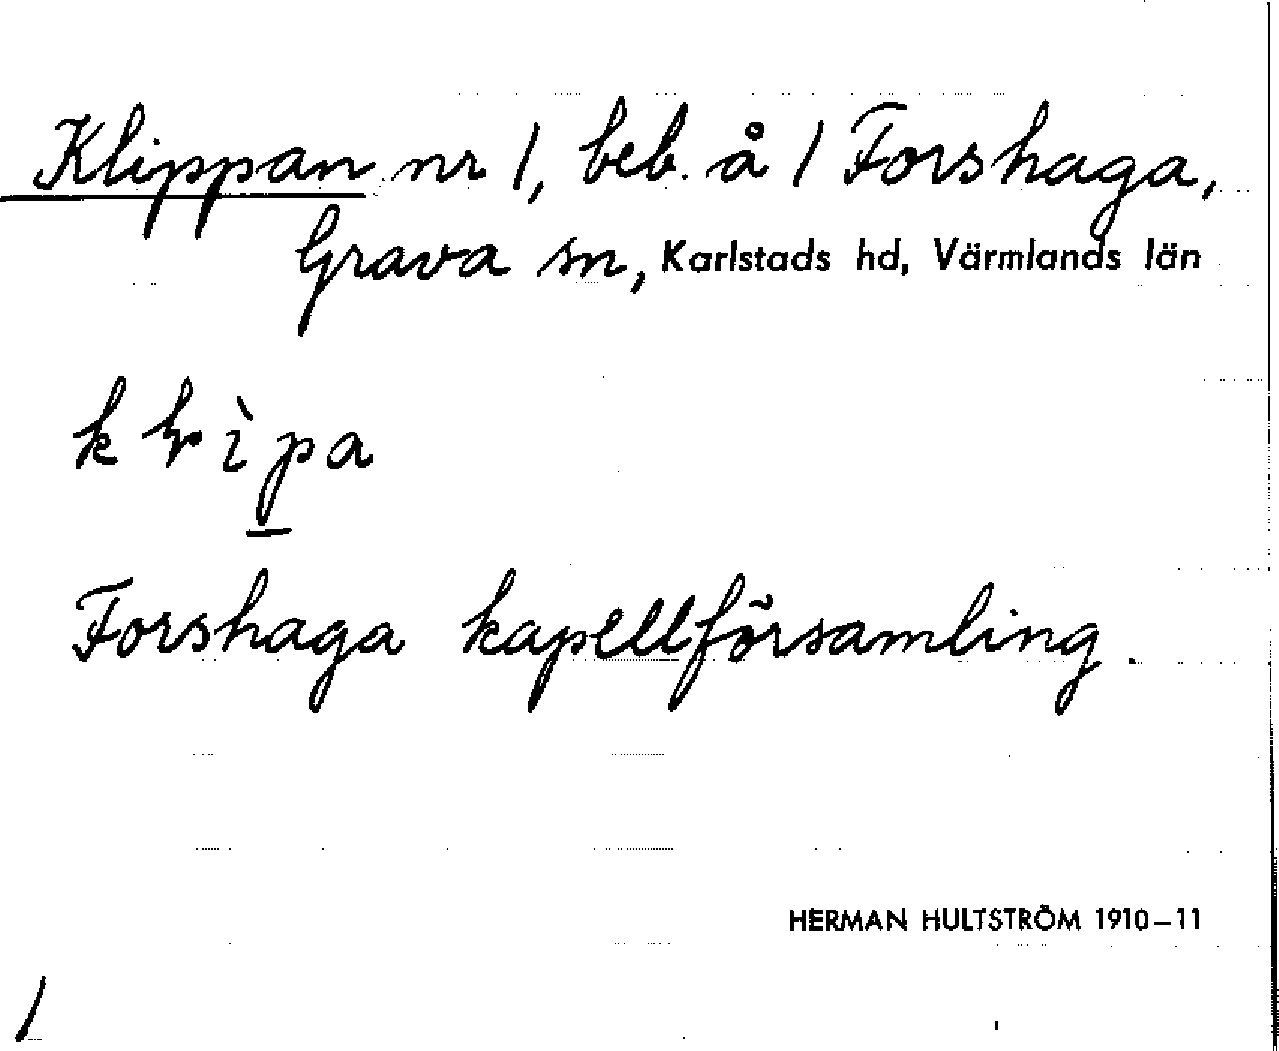 Klippan nr 1, beb. å 1 Forshaga,
Grava sn, Karlstads hd, Värmlands län
Forshaga kapellförsamling.
HERMAN HULTSTRÖM 1910–11